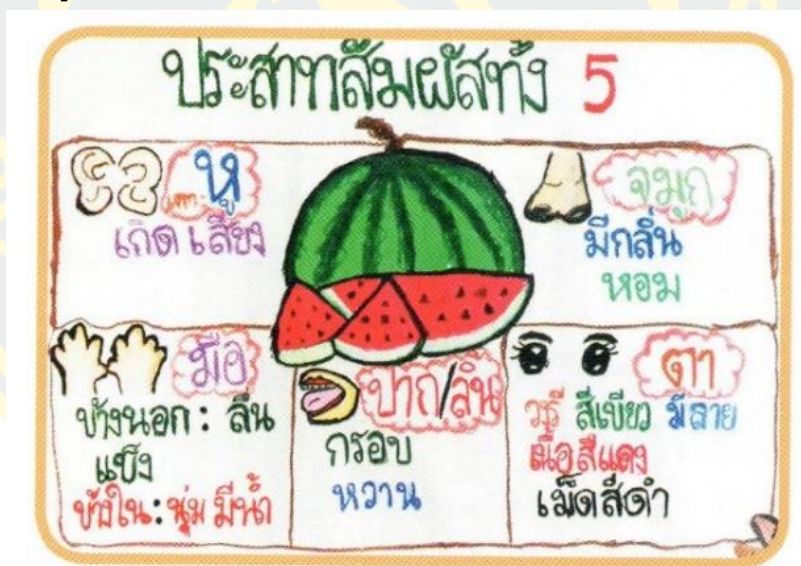 ประสาทสัมผัสทั้ง 5
หู
เกิดเสียง
จมูก
มีกลิ่น
หอม
มือ
ข้างนอก : ลื่น
แข็ง
ข้างใน : นุ่ม มีน้ำ
ปาก/ลิ้น
กรอบ
หวาน
ตา
สีเขียว มีลาย
เนื้อสีแดง
เม็ดสีดำ